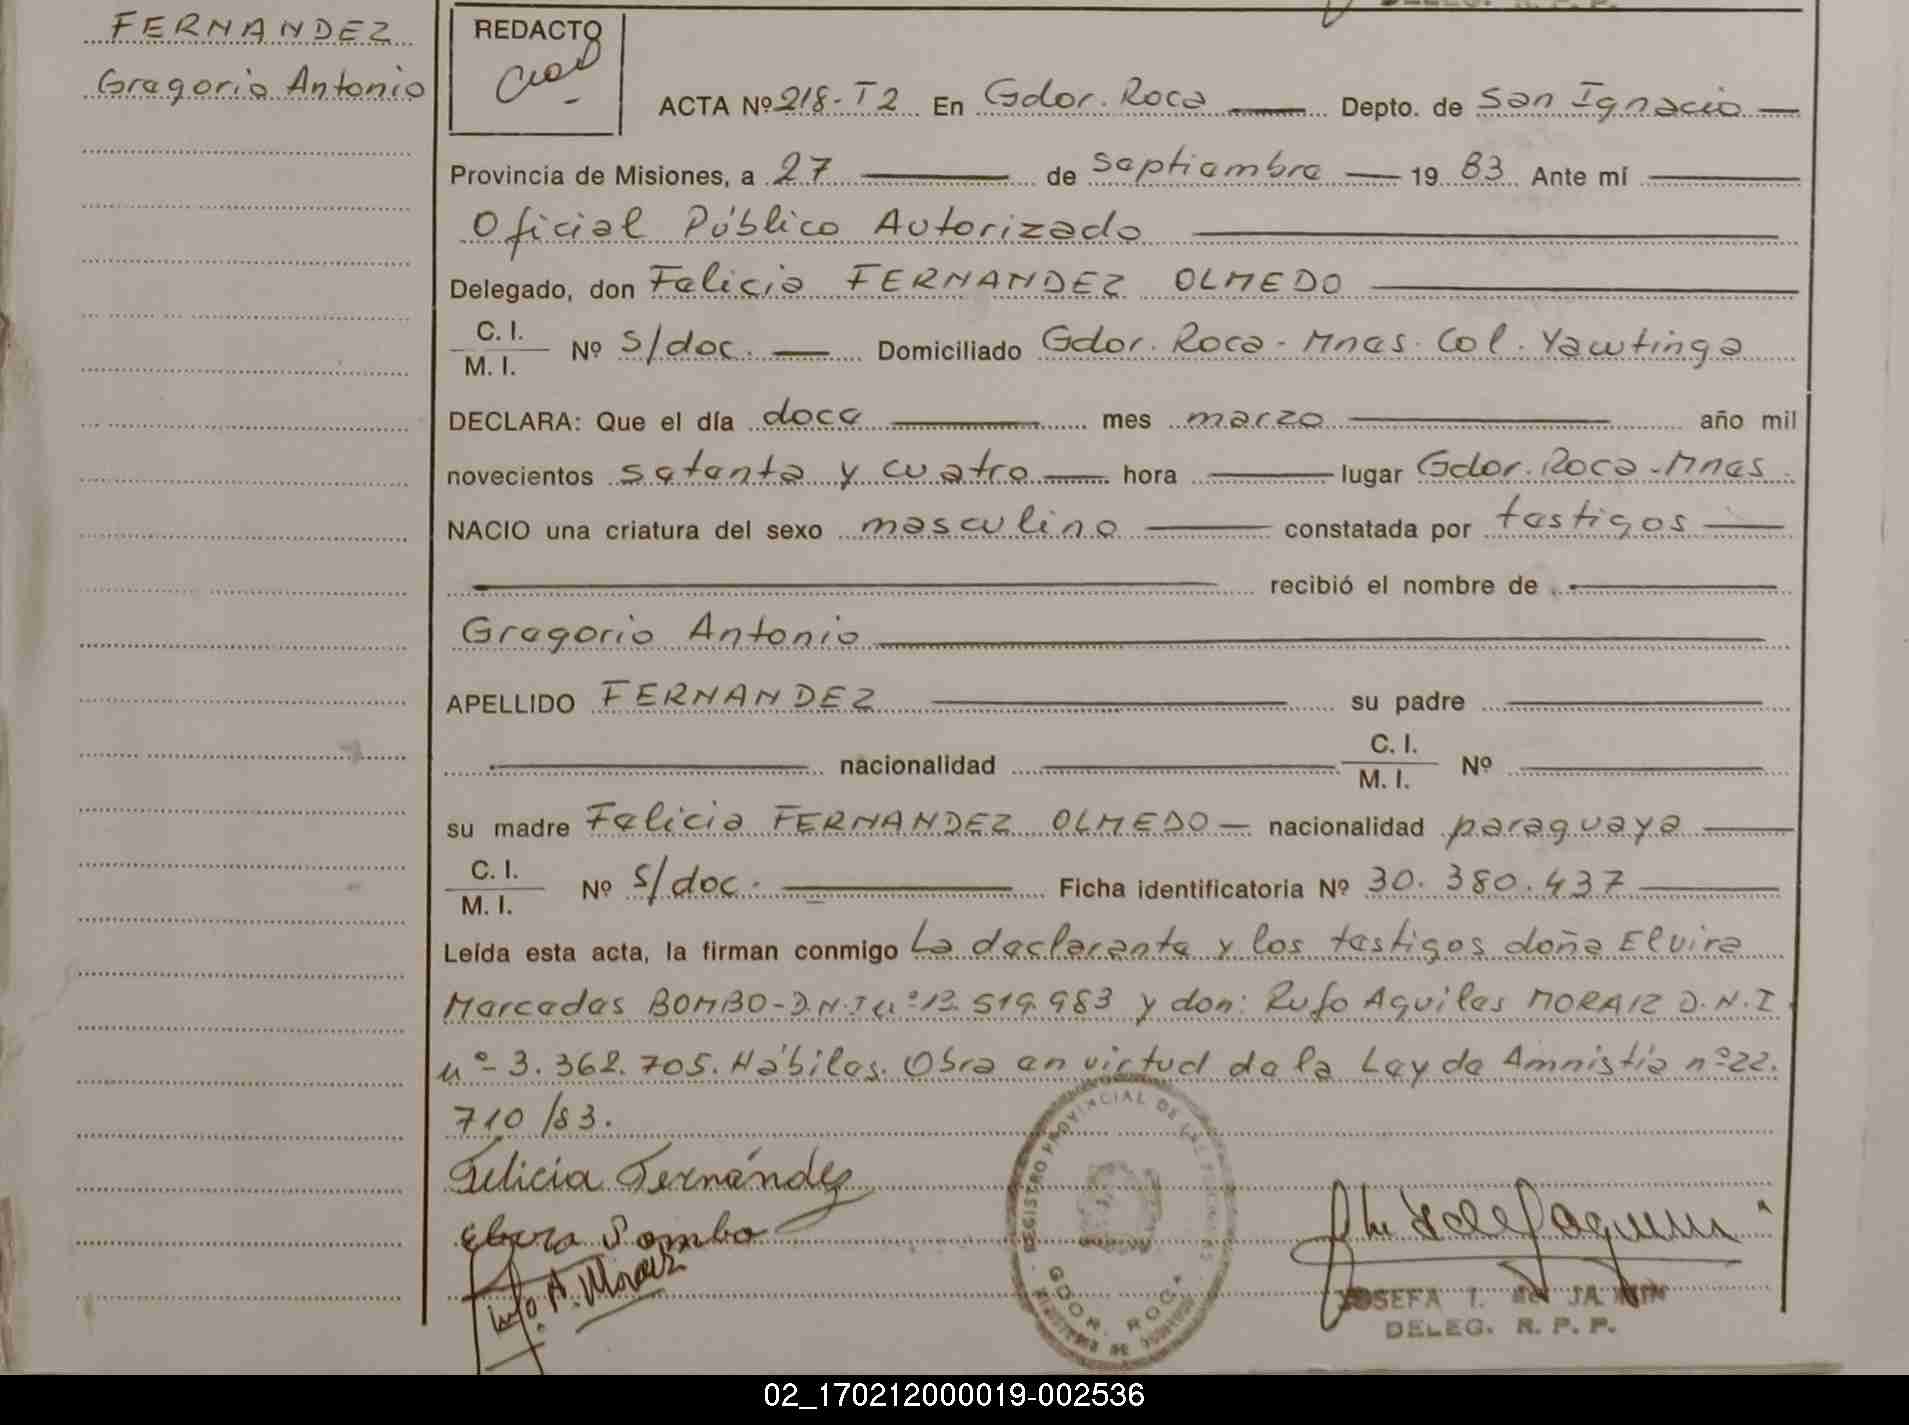 FERNANDEZ
Gregorio Antonio
REDACTO
ACTA Nº 218-T2 En Gdor. Roca Depto. de San Ignacio
Provincia de Misiones, a 27 de septiembre 19 83 Ante mí
Oficial Público Autorizado
Delegado, don Felicia FERNANDEZ OLMEDO
C. I.
M. I. Nº s/doc. Domiciliado Gdor. Roca - Mnes. Col. Yawtinga
DECLARA: Que el día doce mes marzo año mil
novecientos setenta y cuatro hora lugar Gdor. Roca - Mnes.
NACIO una criatura del sexo masculino constatada por testigos
recibió el nombre de
Gregorio Antonio
APELLIDO FERNANDEZ su padre
nacionalidad C. I. M. I. Nº
su madre Felicia FERNANDEZ OLMEDO nacionalidad paraguaya
C. I.
M. I. Nº s/doc. Ficha identificatoria Nº 30.380.437
Leída esta acta, la firman conmigo La declarante y los testigos doña Elvira
Mercedes BOMBO - D.N.I nº 13.519.983 y don: Rufo Aquiles MORAIZ D.N.I.
nº 3.362.705. Hábiles. Obra en virtud de la Ley de Amnistía nº 22.
710/83.
Felicia Fernández
REGISTRO PROVINCIAL DE LAS PERSONAS
GDOR. ROCA
JOSEFA I. de
DELEG. R. P. P.
02_170212000019-002536